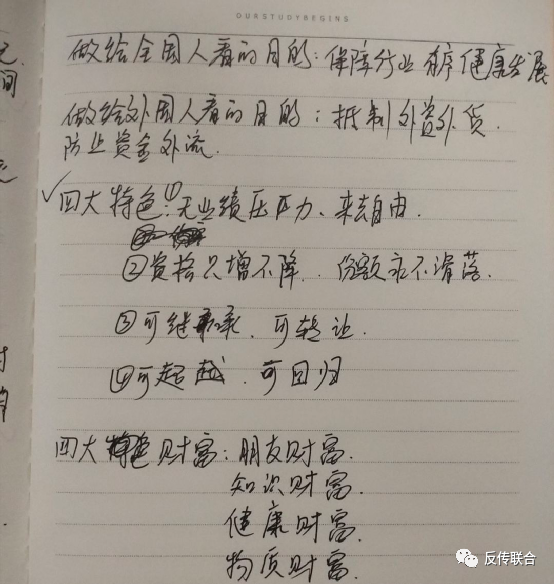 OURSTUDYBEGINS
做给全国人看的目的：保障行业有序健康发展
做给外国人看的目的：抵制外资外货.
防止资金外流.
✓四大特色：①无业绩压压力、来去自由.
②资格只增不降. 份额永不滑落.
③可继承. 可转让.
④可超越. 可回归
四大特色财富：朋友财富.
知识财富.
健康财富.
物质财富.
反传联合